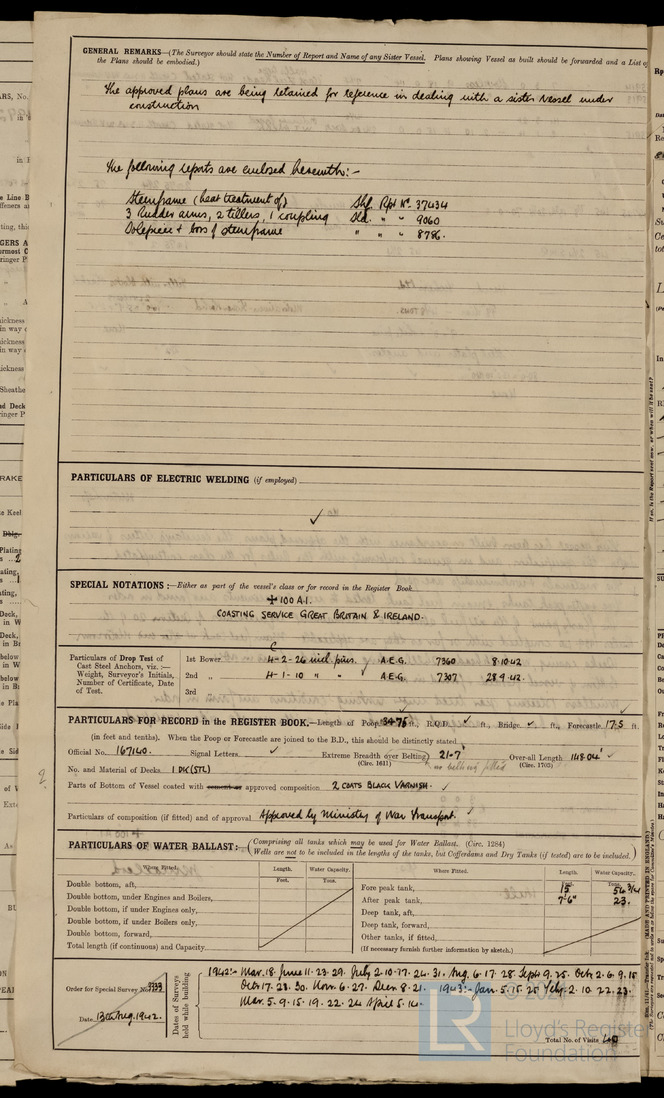 GENERAL REMARKS—(The Surveyor should state the Number of Report and Name of any Sister Vessel. Plans showing Vessel as built should be forwarded and a List of
the Plans should be embodied.)
The approved plans are being retained for reference in dealing with a sister vessel under
construction
The following reports are enclosed herewith:-
Sternframe (heat treatment of) Shf. Rpt No. 37434
3 Rudder arms, 2 tillers, 1 coupling Sld. " " 9060
Solepiece & boss of sternframe " " " 8786.
PARTICULARS OF ELECTRIC WELDING (if employed)
✓
SPECIAL NOTATIONS:—Either as part of the vessel's class or for record in the Register Book
✠ 100 A.1.
COASTING SERVICE GREAT BRITAIN & IRELAND.
Particulars of Drop Test of 1st Bower 4-2-26 incl. pins. A.E.G. 7360 8.10.42
Cast Steel Anchors, viz.:—
Weight, Surveyor's Initials, 2nd " 4-1-10 " " A.E.G. 7307 28.9.42.
Number of Certificate, Date
of Test. 3rd "
PARTICULARS FOR RECORD in the REGISTER BOOK.—Length of Poop 34.75 ft., R.Q.D. ✓ ft., Bridge ✓ ft., Forecastle 17.5 ft.
(in feet and tenths). When the Poop or Forecastle are joined to the B.D., this should be distinctly stated
Official No. 167140. Signal Letters ✓ Extreme Breadth over Belting 21.7' Over-all Length 148.04' ✓
(Circ. 1611) no belting fitted (Circ. 1703)
No. and Material of Decks 1 DK (STL)
Parts of Bottom of Vessel coated with cement or approved composition 2 COATS BLACK VARNISH. ✓
Particulars of composition (if fitted) and of approval Approved by Ministry of War Transport. ✓
PARTICULARS OF WATER BALLAST:—(Comprising all tanks which may be used for Water Ballast. (Circ. 1284)
Wells are not to be included in the lengths of the tanks, but Cofferdams and Dry Tanks (if tested) are to be included.)
Where Fitted. Length. Water Capacity. Where Fitted. Length. Water Capacity.
Feet. Tons. Feet. Tons.
Double bottom, aft, Fore peak tank, 15 54 3/4
Double bottom, under Engines and Boilers, After peak tank, 7'-6" 23.
Double bottom, if under Engines only, Deep tank, aft,
Double bottom, if under Boilers only, Deep tank, forward,
Double bottom, forward, Other tanks, if fitted,
Total length (if continuous) and Capacity (If necessary furnish further information by sketch.)
Order for Special Survey No.
Date 13th Aug. 1942.
Dates of Surveys held while building
1942:- Mar. 18. June 11. 23. 29. July 2. 10. 17. 24. 31. Aug. 6. 17. 28. Sept 9. 25. Oct. 2. 6. 9. 15
Oct. 17. 23. 30. Nov. 6. 27. Decr. 8. 21. 1943:- Jan. 5. 15. 25. Feby. 2. 10. 22. 23.
Mar. 5. 9. 15. 19. 22. 24. April 5. 14.
Total No. of Visits 40
LR
Lloyd's Register
Foundation